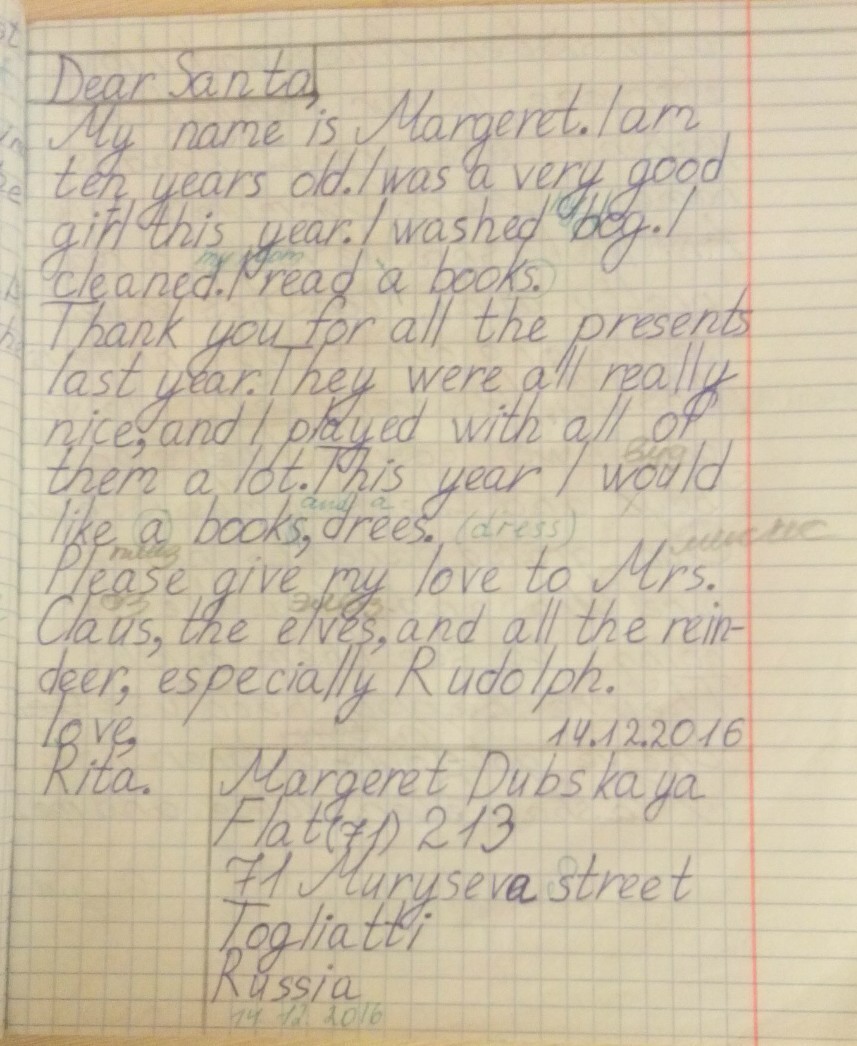 Dear Santa,
My name is Margeret. I am
ten years old. I was a very good
girl this year. I washed my dog. I
my room
cleaned. I read a books.
Thank you for all the presents
last year. They were all really
nice, and I played with all of
them a lot. This year I would
and a
like a books, drees. (dress)
Please give my love to Mrs.
Claus, the elves, and all the rein-
deer, especially Rudolph.
love,
14.12.2016
Rita.
Margeret Dubskaya
Flat (71) 213
71 Muryseva street
Togliatti
Russia
14 12 2016